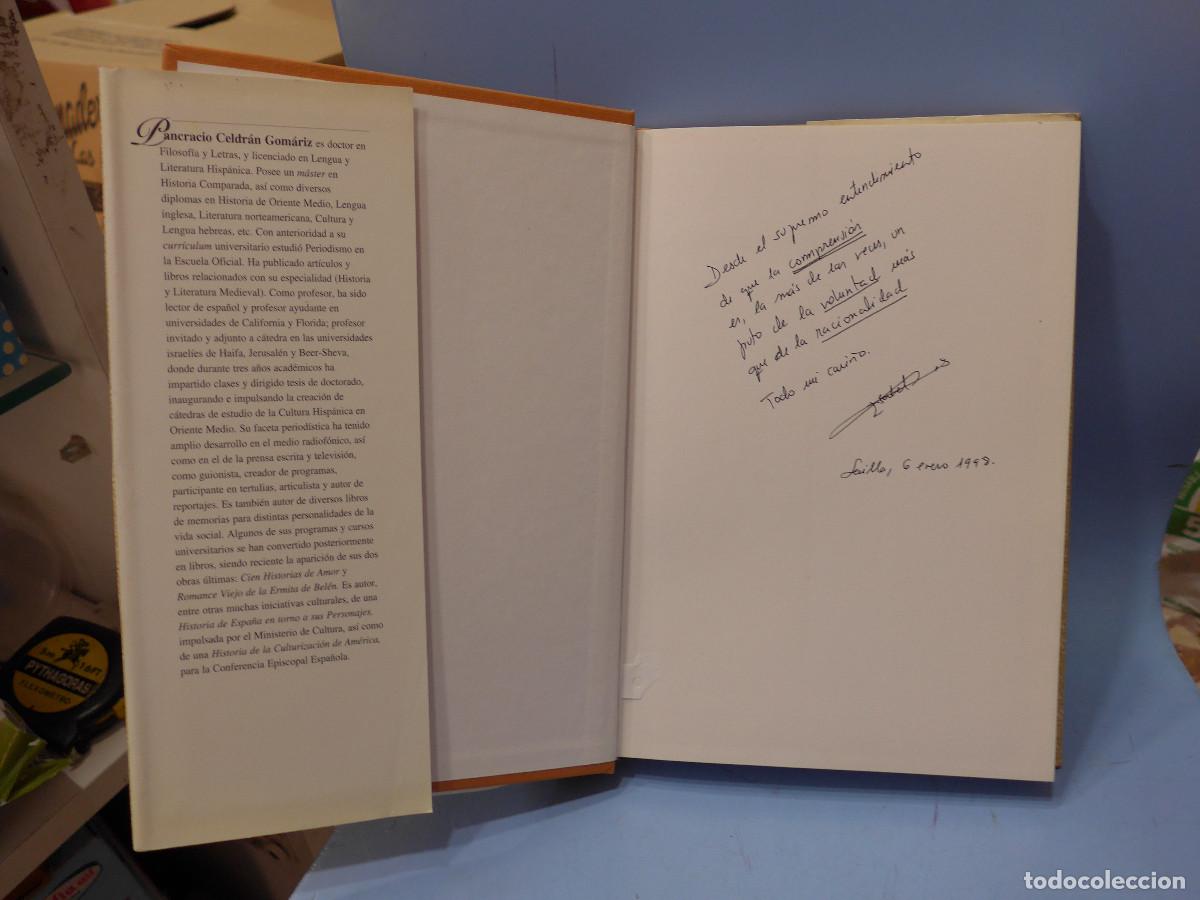 Pancracio Celdrán Gomáriz es doctor en
Filosofía y Letras, y licenciado en Lengua y
Literatura Hispánica. Posee un máster en
Historia Comparada, así como diversos
diplomas en Historia de Oriente Medio, Lengua
inglesa, Literatura norteamericana, Cultura y
Lengua hebreas, etc. Con anterioridad a su
currículum universitario estudió Periodismo en
la Escuela Oficial. Ha publicado artículos y
libros relacionados con su especialidad (Historia
y Literatura Medieval). Como profesor, ha sido
lector de español y profesor ayudante en
universidades de California y Florida; profesor
invitado y adjunto a cátedra en las universidades
israelíes de Haifa, Jerusalén y Beer-Sheva,
donde durante tres años académicos ha
impartido clases y dirigido tesis de doctorado,
inaugurando e impulsando la creación de
cátedras de estudio de la Cultura Hispánica en
Oriente Medio. Su faceta periodística ha tenido
amplio desarrollo en el medio radiofónico, así
como en el de la prensa escrita y televisión,
como guionista, creador de programas,
participante en tertulias, articulista y autor de
reportajes. Es también autor de diversos libros
de memorias para distintas personalidades de la
vida social. Algunos de sus programas y cursos
universitarios se han convertido posteriormente
en libros, siendo reciente la aparición de sus dos
obras últimas: Cien Historias de Amor y
Romance Viejo de la Ermita de Belén. Es autor,
entre otras muchas iniciativas culturales, de una
Historia de España en torno a sus Personajes,
impulsada por el Ministerio de Cultura, así como
de una Historia de la Culturización de América,
para la Conferencia Episcopal Española.
Desde el supremo entendimiento
de que la comprensión
es, la más de las veces, un
fruto de la voluntad más
que de la racionalidad
Todo mi cariño.
Sevilla, 6 enero 1998.
5m 16FT
PYTHAGORAS
FLEXOMETRO
todocoleccion